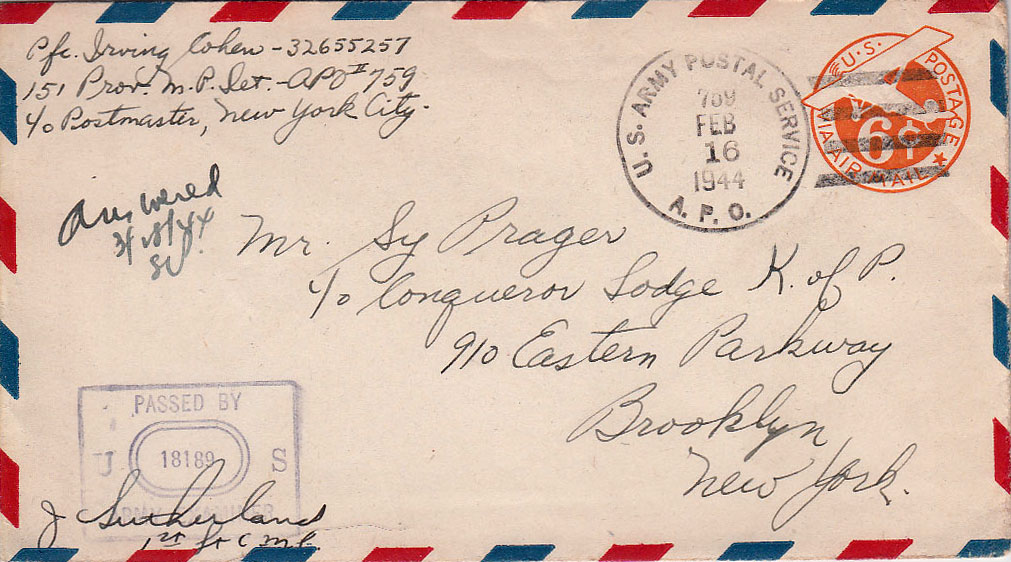 Pfc. Irving Cohen - 32655257
151 Prov. M.P. Det. - APO # 759
c/o Postmaster, New York City.
U.S. ARMY POSTAL SERVICE
769
FEB
16
1944
A. P. O.
U.S. POSTAGE
6¢
VIA AIR MAIL
Answered
3/18/44
Mr. Sy Prager
c/o Conqueror Lodge K. of P.
910 Eastern Parkway
Brooklyn,
New York.
PASSED BY
U 18189 S
ARMY EXAMINER
J Sutherland
1st Lt C.M.P.